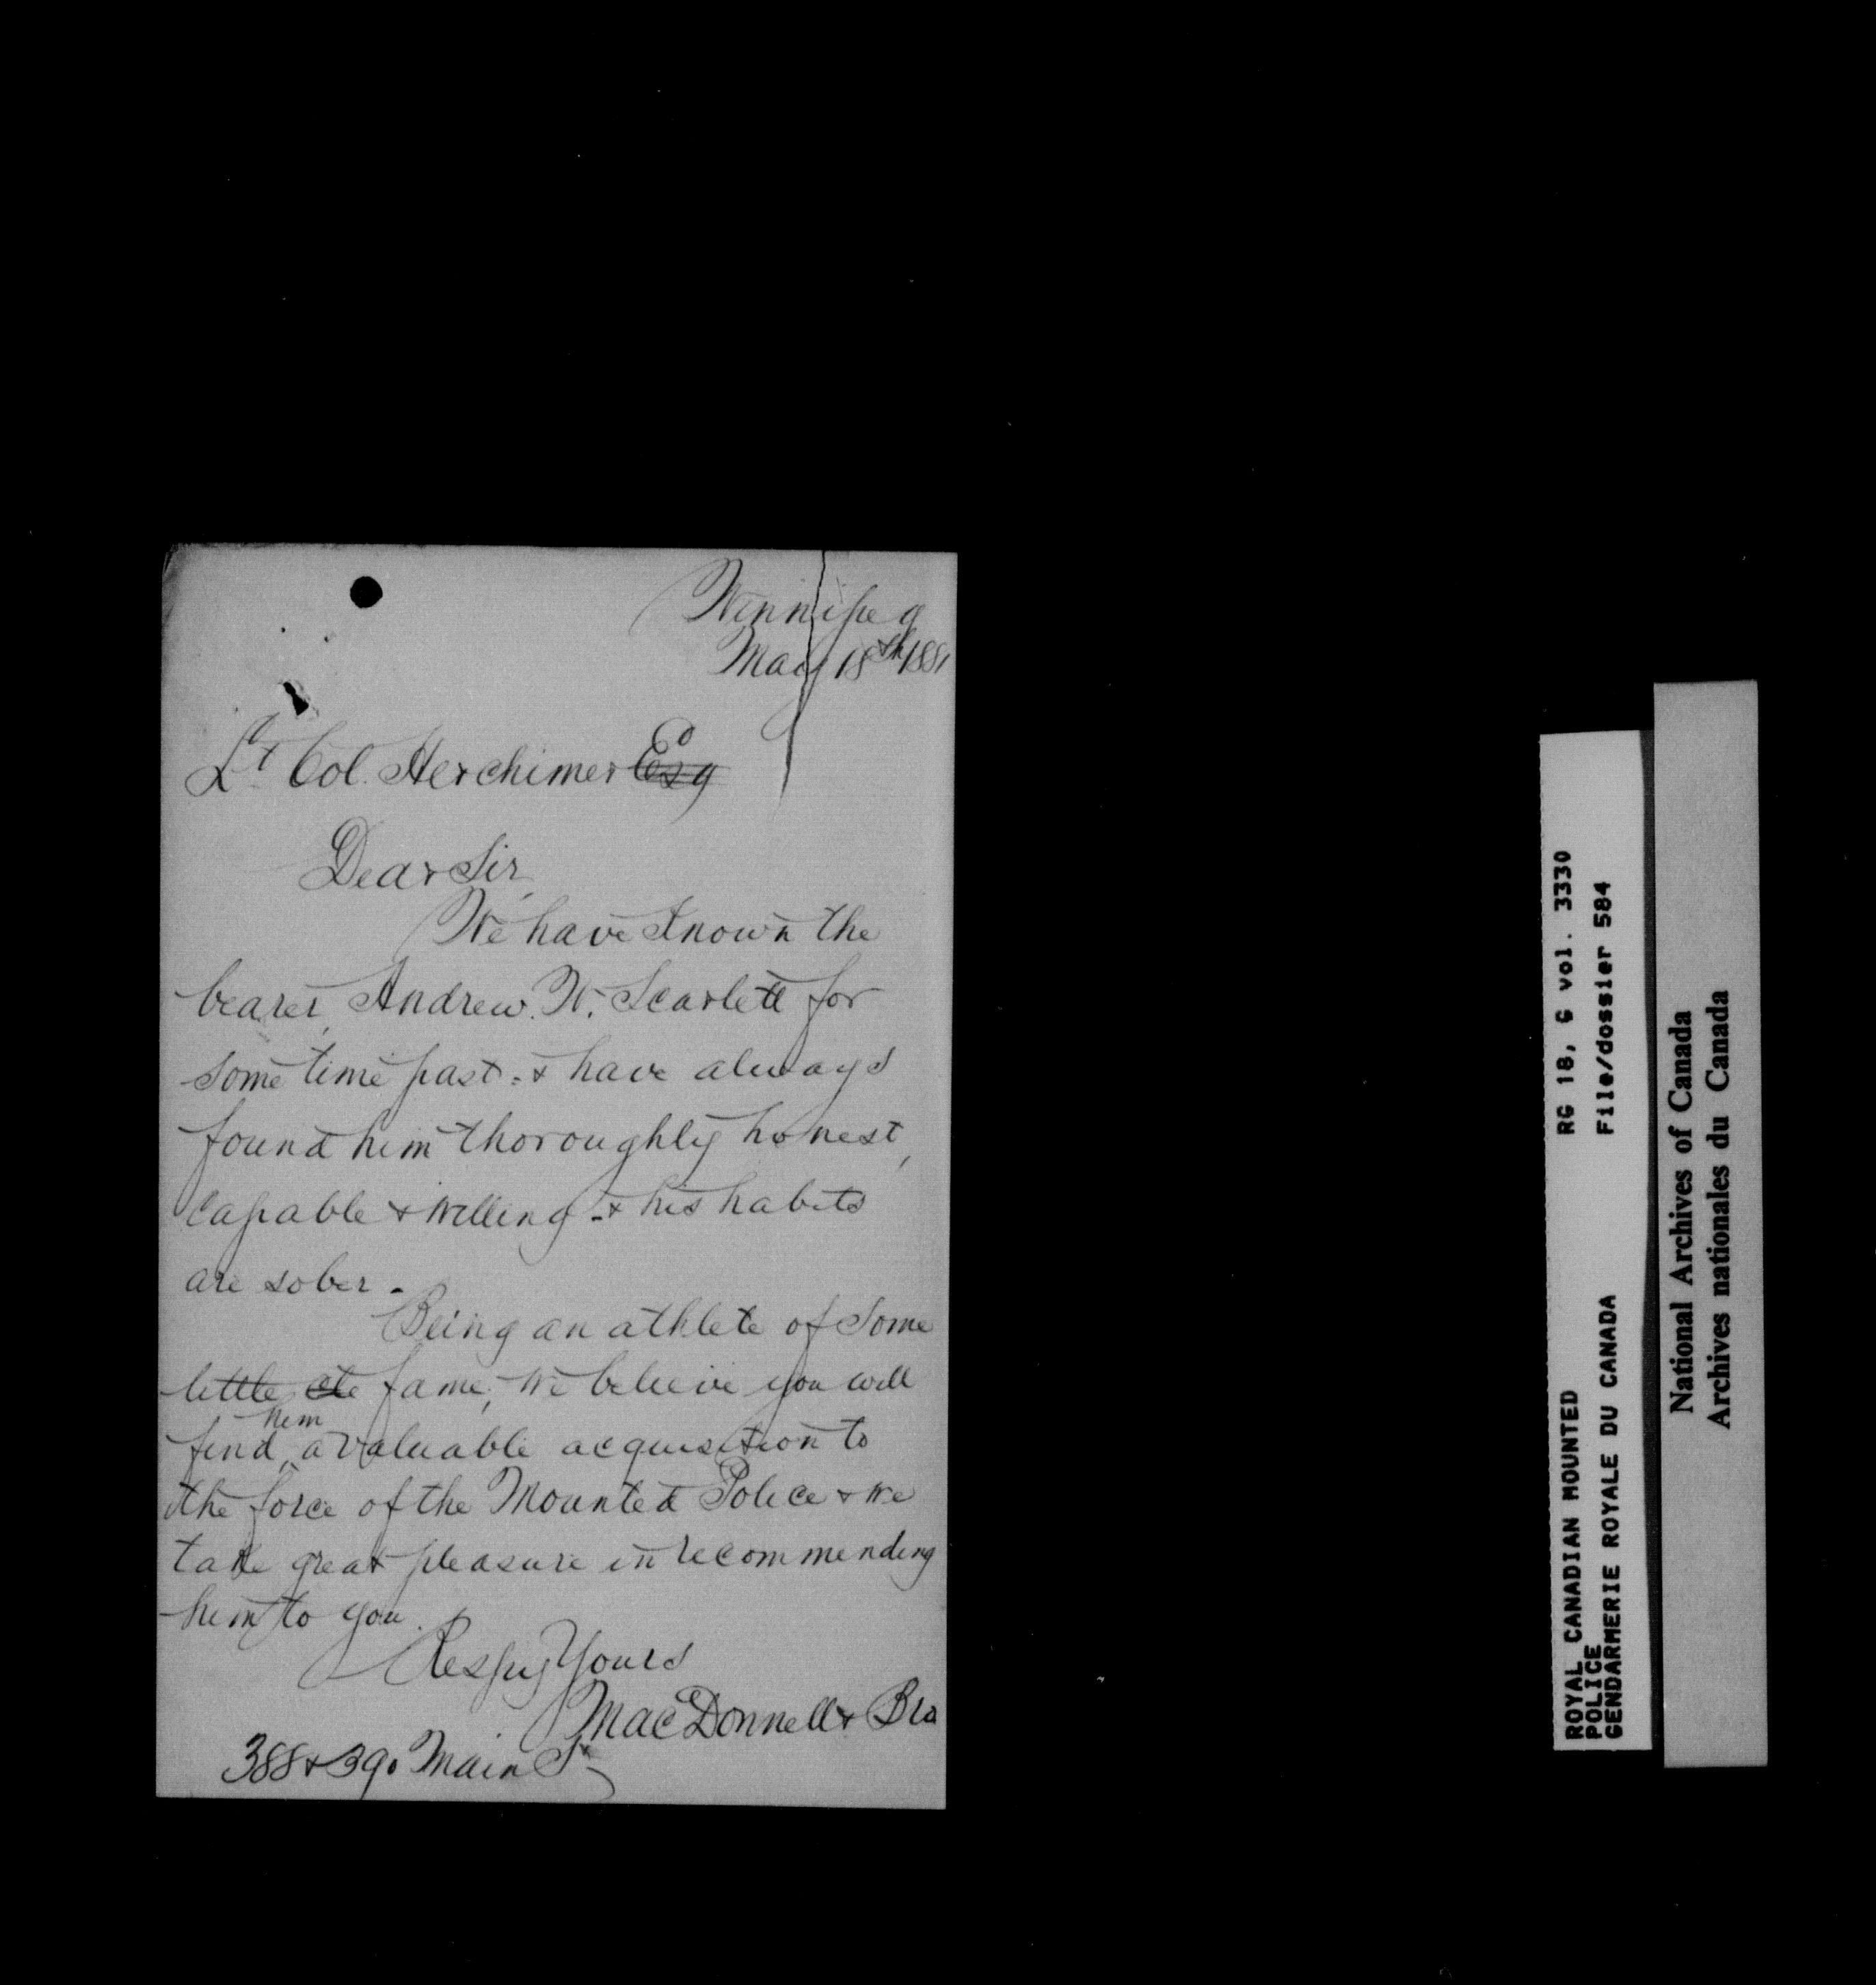 Winnipeg
May 18th 1881
Lt Col. Herchimer Esq
Dear Sir,
We have known the
bearer, Andrew. W. Scarlett for
some time past - & have always
found him thoroughly honest,
capable & willing - & his habits
are sober -
Being an athlete of some
little fame, we believe you will
him
find a valuable acquisition to
the force of the Mounted Police & we
take great pleasure in recommending
him to you.
Respy Yours
MacDonnell & Bro
388 & 390 Main St
ROYAL CANADIAN MOUNTED RG 18, G vol. 3330
POLICE File/dossier 584
GENDARMERIE ROYALE DU CANADA
National Archives of Canada
Archives nationales du Canada